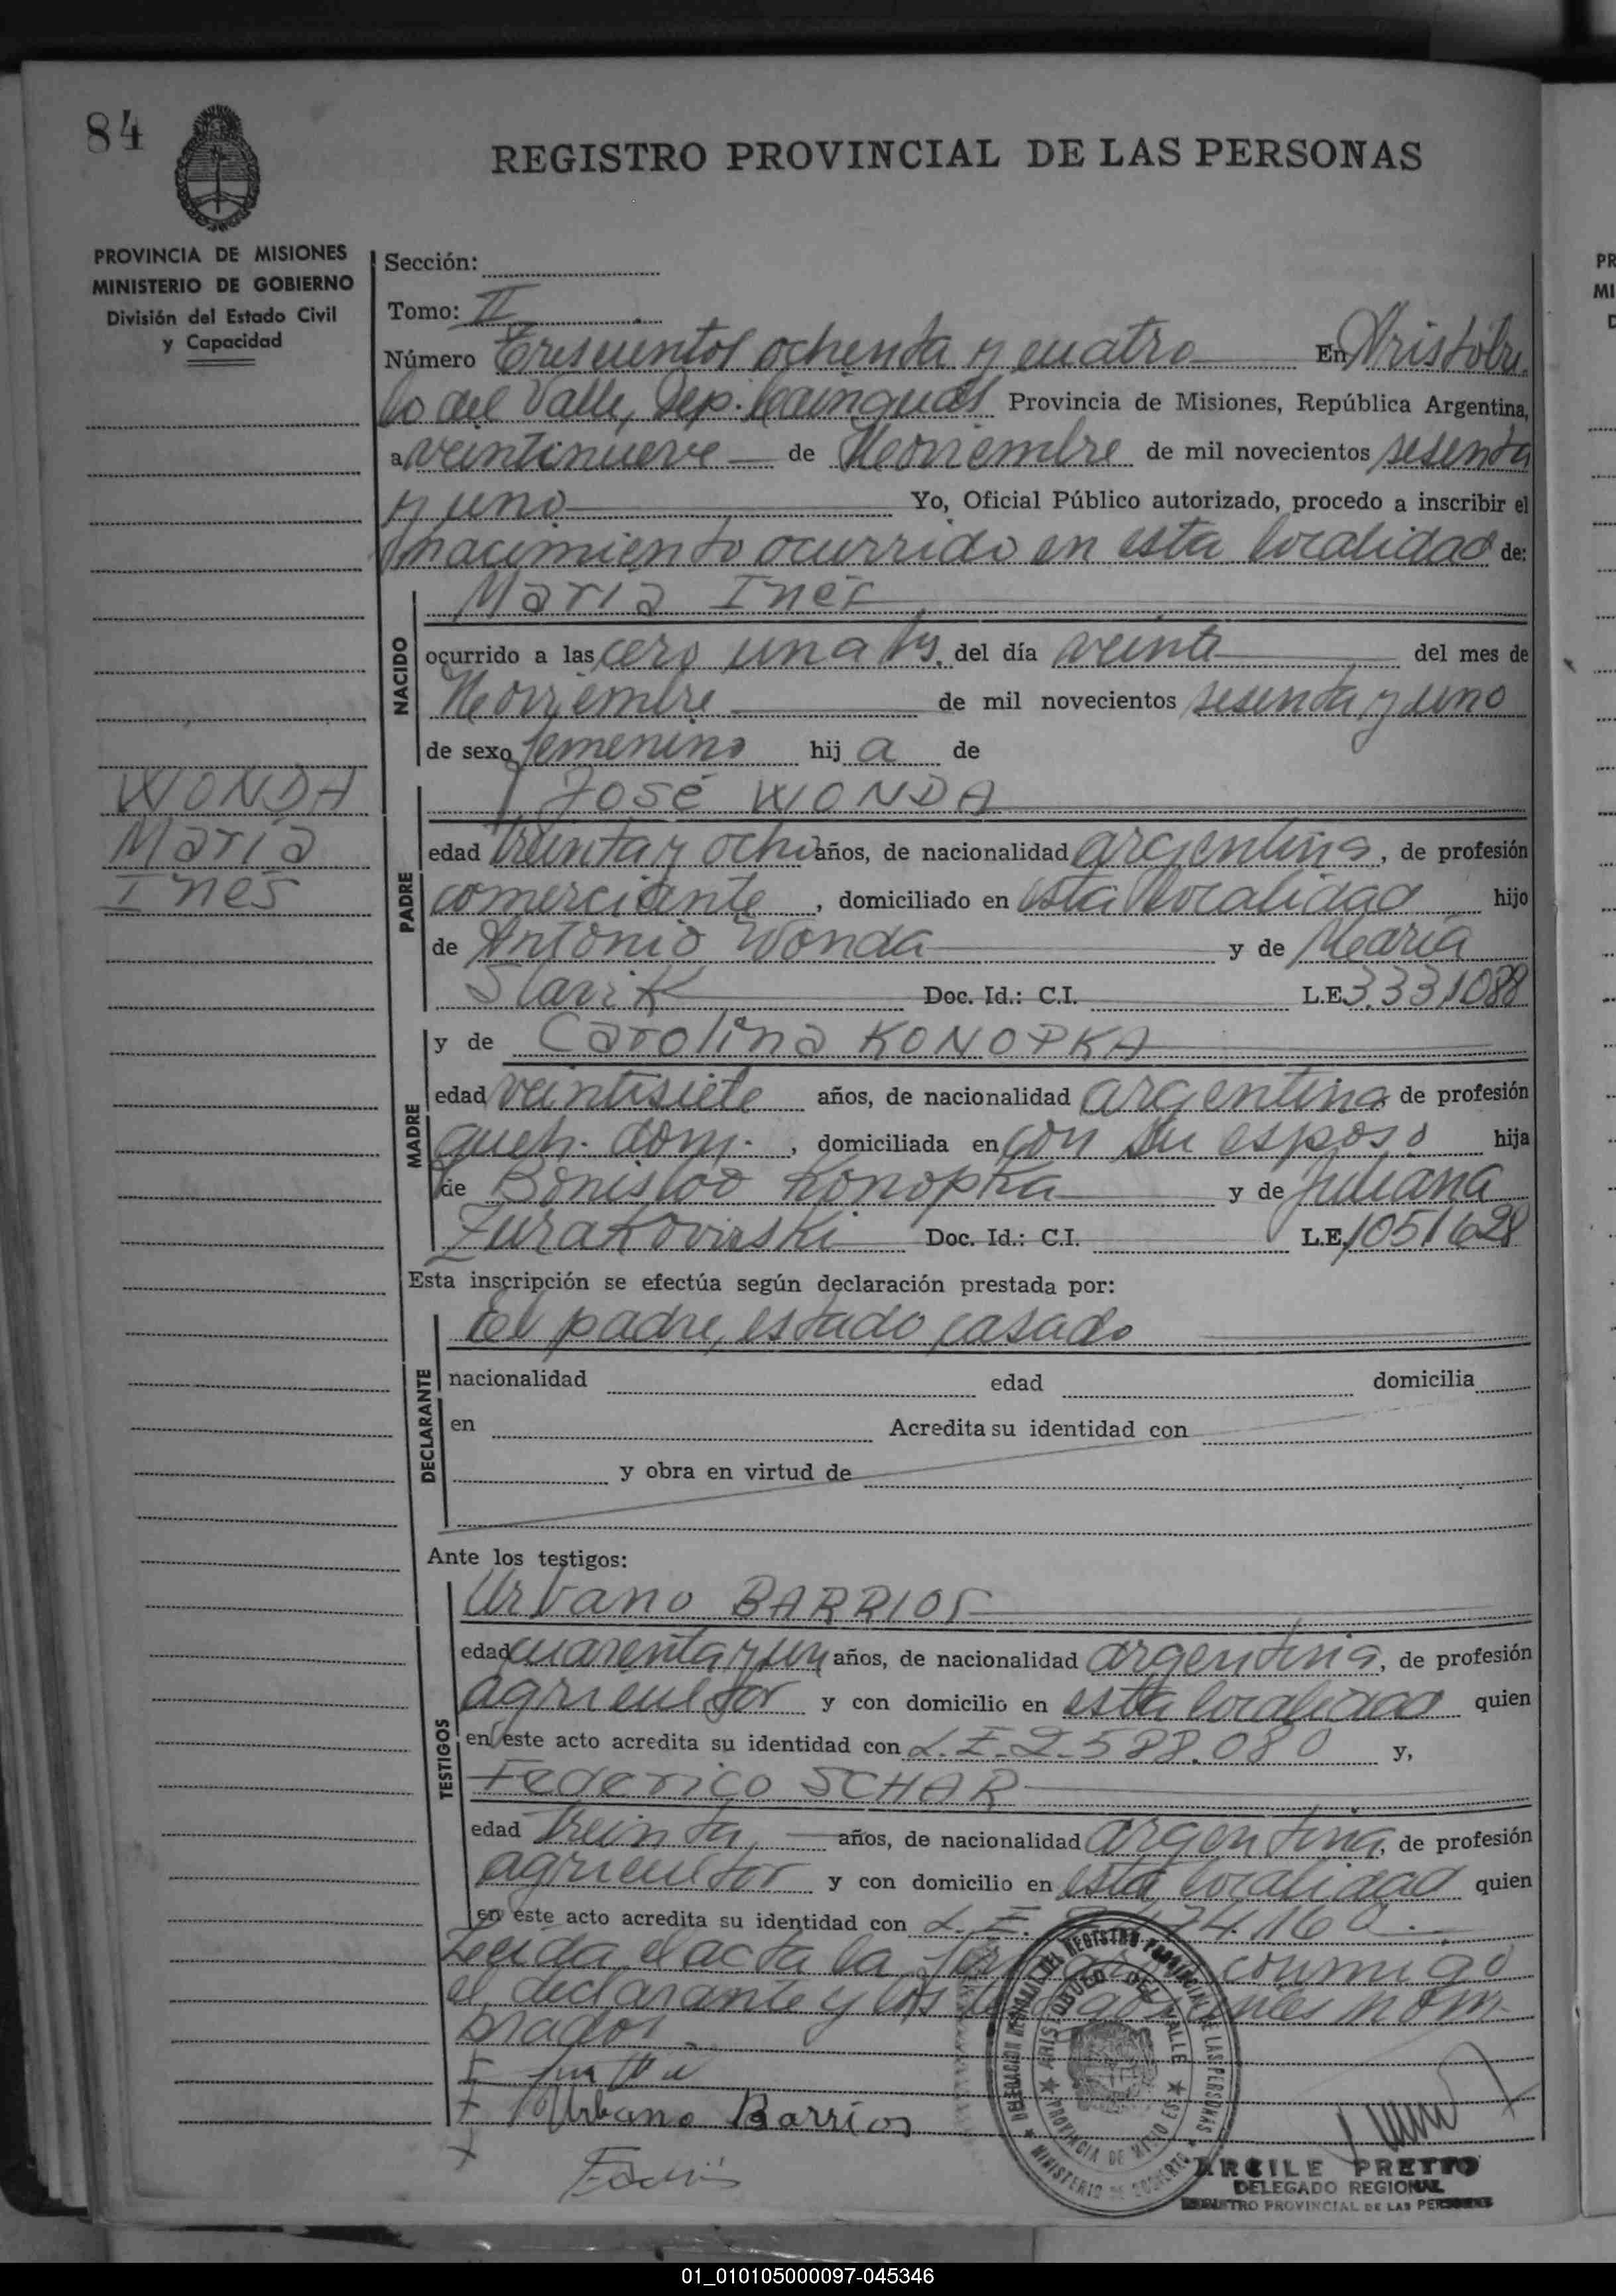 84
REGISTRO PROVINCIAL DE LAS PERSONAS
PROVINCIA DE MISIONES
MINISTERIO DE GOBIERNO
División del Estado Civil
y Capacidad
Sección:
Tomo: II
Número Trescientos ochenta y cuatro En Aristóbu
lo del Valle, Dep. Cainguás Provincia de Misiones, República Argentina,
a veintinueve de Noviembre de mil novecientos sesenta
y uno Yo, Oficial Público autorizado, procedo a inscribir el
nacimiento ocurrido en esta localidad de:
NACIDO
María Inés
ocurrido a las cero una hs. del día veinte del mes de
Noviembre de mil novecientos sesenta y uno
de sexo femenino hij a de
WONDA
María
Inés
PADRE
José WONDA
edad treinta y ocho años, de nacionalidad argentina, de profesión
comerciante, domiciliado en esta localidad hijo
de Antonio Wonda y de María
Slavik Doc. Id.: C.I. L.E. 3.331088
MADRE
y de Carolina KONOPKA
edad veintisiete años, de nacionalidad argentina de profesión
queh. dom., domiciliada en con su esposo hija
de Bonislao Konopka y de Juliana
Doc. Id.: C.I. L.E. 1051628
Esta inscripción se efectúa según declaración prestada por:
DECLARANTE
El padre, estado casado
nacionalidad edad domicilia
en Acredita su identidad con
y obra en virtud de
Ante los testigos:
TESTIGOS
Urbano BARRIOS
edad cuarenta y un años, de nacionalidad argentina, de profesión
agricultor y con domicilio en esta localidad quien
en este acto acredita su identidad con L.E. 2.588.080 y,
Federico SCHAR
edad treinta, años, de nacionalidad argentina, de profesión
agricultor y con domicilio en esta localidad quien
en este acto acredita su identidad con L.E.
Leida el acta la conmigo
el declarante y los nom-
brados.
Urbano Barrios
DELEGACION REGIONAL DEL REGISTRO PROVINCIAL DE LAS PERSONAS
ARISTOBULO DEL VALLE
PROVINCIA DE MISIONES
MINISTERIO DE GOBIERNO
ARCILE PRETTO
DELEGADO REGIONAL
REGISTRO PROVINCIAL DE LAS PERSONAS
PR
MI
D
01_010105000097-045346